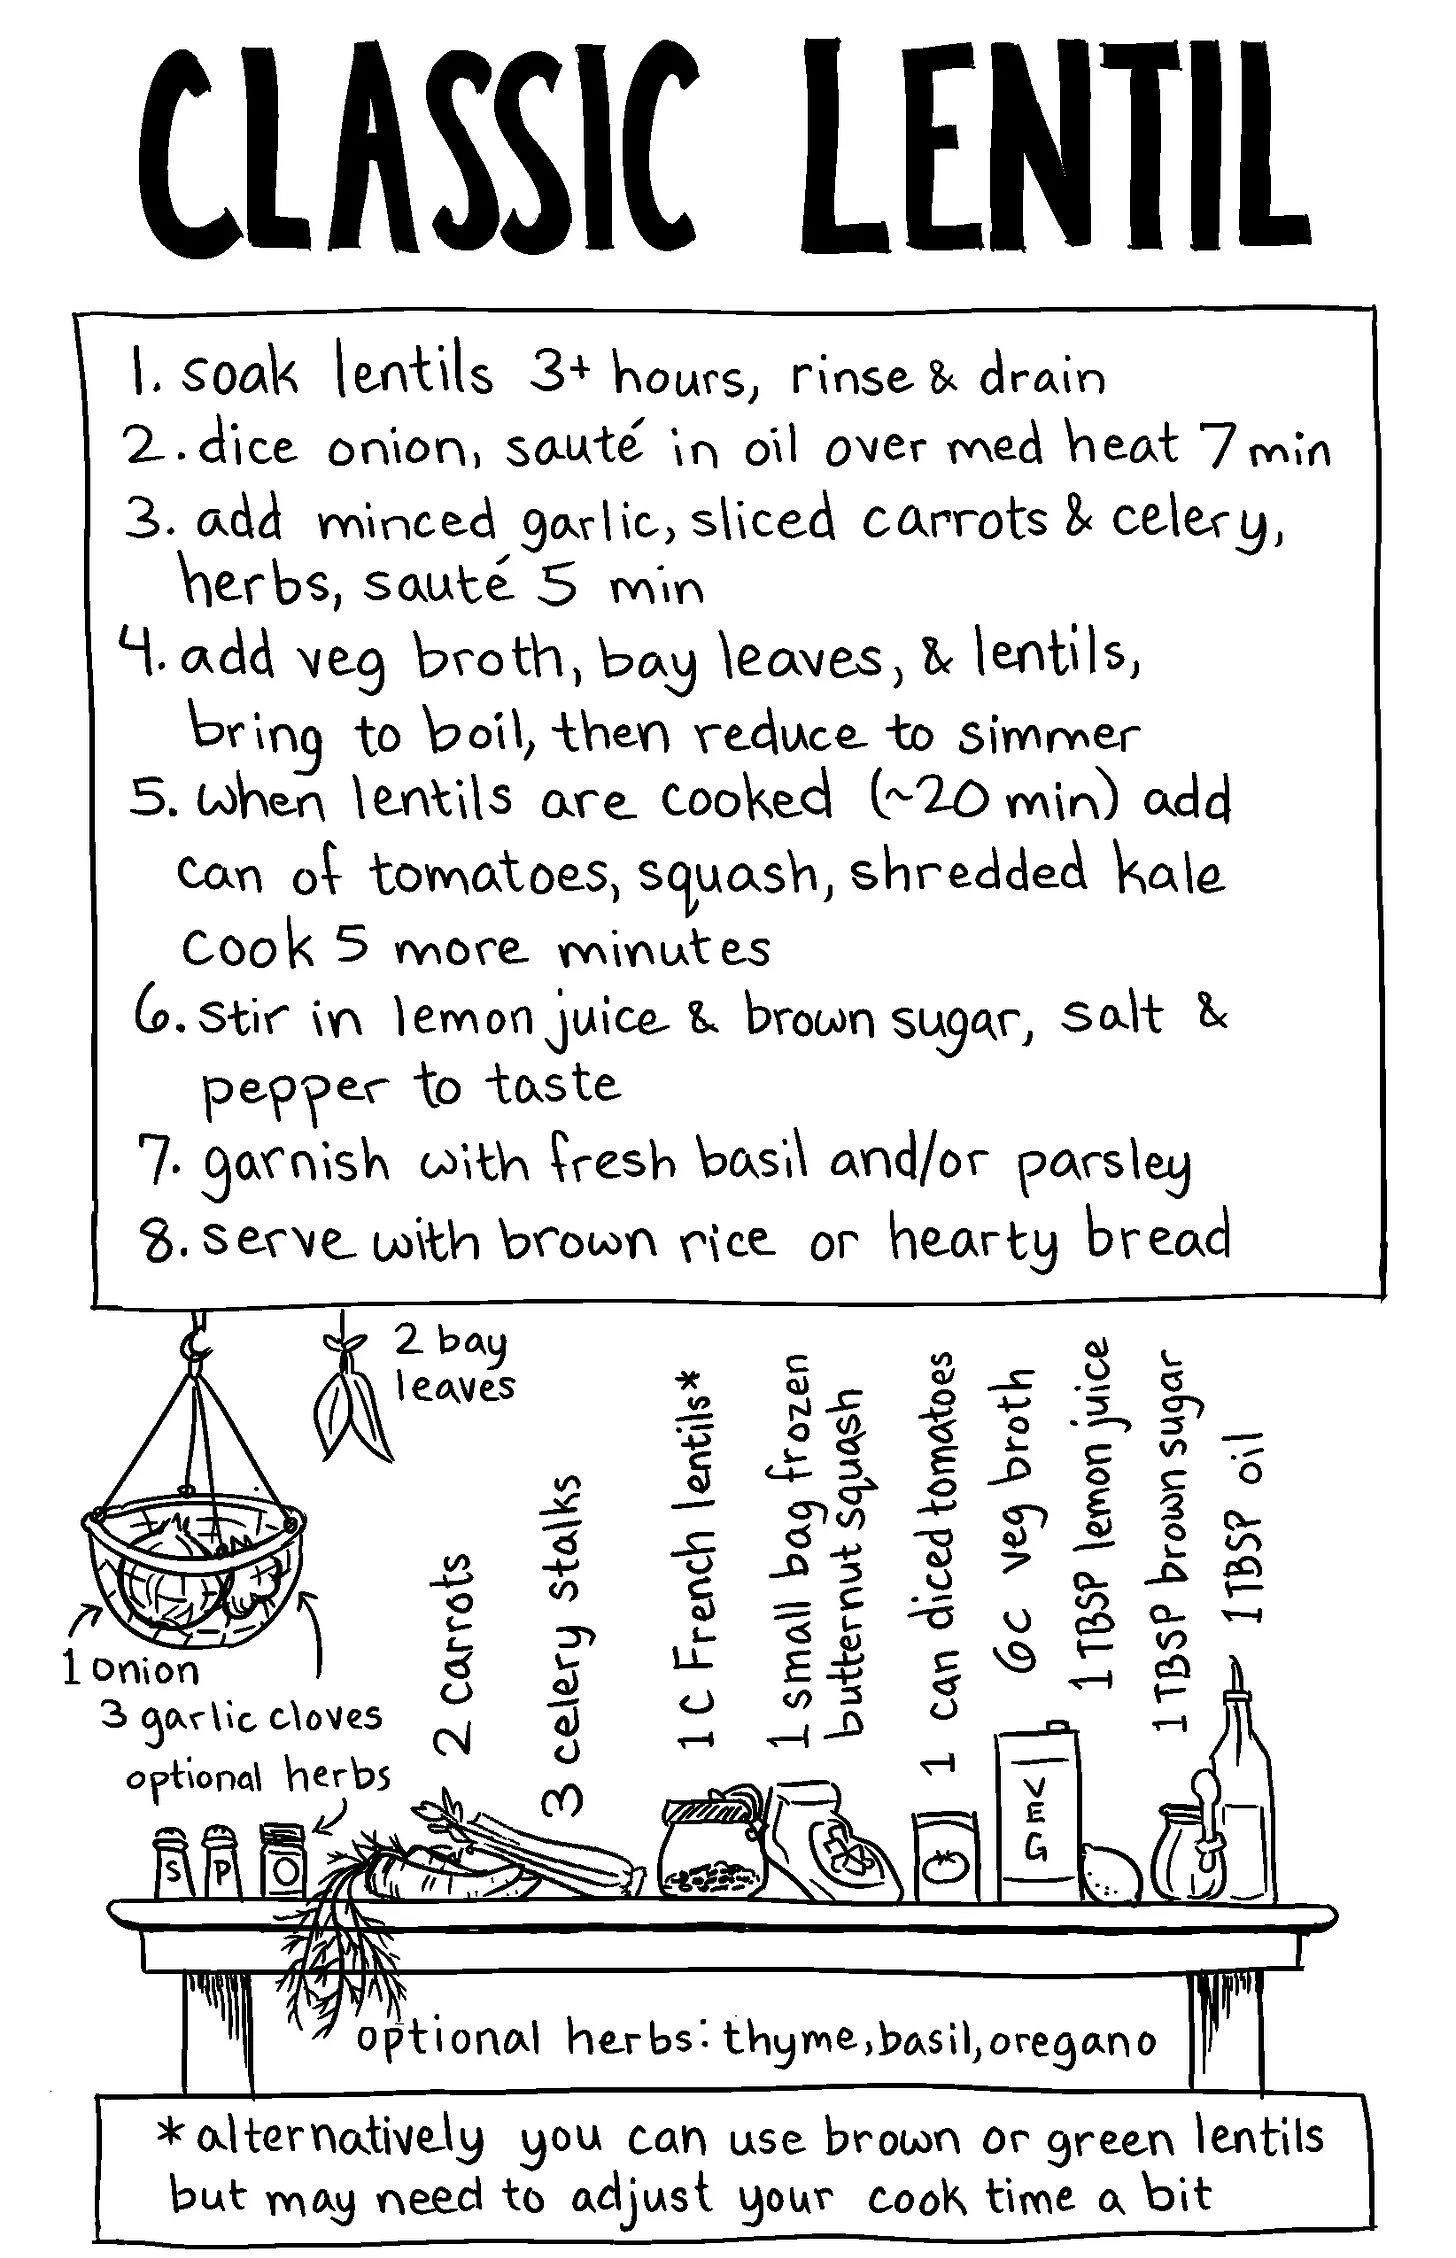 CLASSIC LENTIL
1. soak lentils 3+ hours, rinse & drain
2. dice onion, sauté in oil over med heat 7 min
3. add minced garlic, sliced carrots & celery,
herbs, sauté 5 min
4. add veg broth, bay leaves, & lentils,
bring to boil, then reduce to simmer
5. when lentils are cooked (~20 min) add
can of tomatoes, squash, shredded kale
cook 5 more minutes
6. stir in lemon juice & brown sugar, salt &
pepper to taste
7. garnish with fresh basil and/or parsley
8. serve with brown rice or hearty bread
2 bay
leaves
1 onion
3 garlic cloves
optional herbs
2 carrots
3 celery stalks
1 C French lentils*
1 small bag frozen
butternut squash
1 can diced tomatoes
6C veg broth
1 TBSP lemon juice
1 TBSP brown sugar
1 TBSP oil
S
P
O
VEG
optional herbs: thyme, basil, oregano
*alternatively you can use brown or green lentils
but may need to adjust your cook time a bit